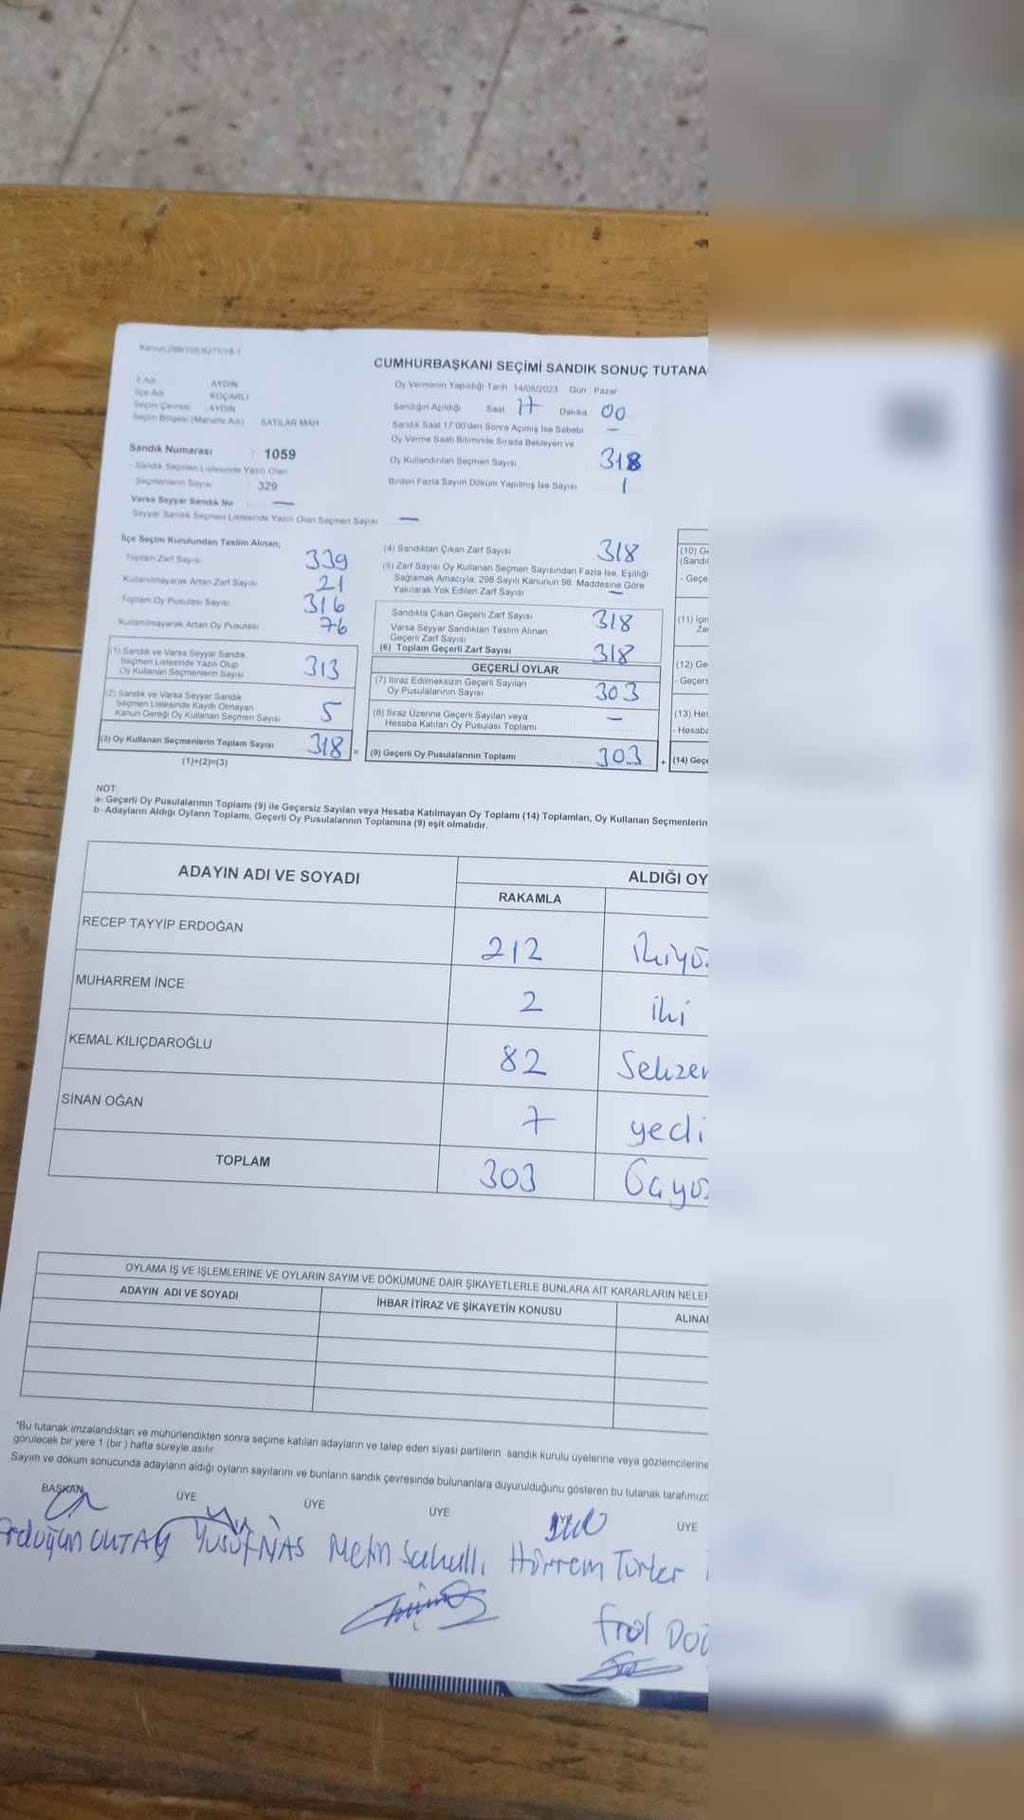 CUMHURBAŞKANI SEÇİMİ SANDIK SONUÇ TUTANA
İl Adı AYDIN
İlçe Adı KOÇARLI
Seçim Çevresi AYDIN
Seçim Bölgesi (Mahalle Adı) SATILAR MAH
Sandık Numarası : 1059
Sandık Seçmen Listesinde Yazılı Olan
Seçmenlerin Sayısı : 329
Varsa Seyyar Sandık No : —
Seyyar Sandık Seçmen Listesinde Yazılı Olan Seçmen Sayısı —
Oy Vermenin Yapıldığı Tarih 14/05/2023 Gün Pazar
Sandığın Açıldığı Saat 17 Dakika 00
Sandık Saat 17:00'den Sonra Açılmış İse Sebebi —
Oy Verme Saati Bitiminde Sırada Bekleyen ve
Oy Kullandırılan Seçmen Sayısı 318
Birden Fazla Sayım Döküm Yapılmış İse Sayısı 1
İlçe Seçim Kurulundan Teslim Alınan;
Toplam Zarf Sayısı 339
Kullanılmayarak Artan Zarf Sayısı 21
Toplam Oy Pusulası Sayısı 316
Kullanılmayarak Artan Oy Pusulası 76
(1) Sandık ve Varsa Seyyar Sandık
Seçmen Listesinde Yazılı Olup
Oy Kullanan Seçmenlerin Sayısı 313
(2) Sandık ve Varsa Seyyar Sandık
Seçmen Listesinde Kayıtlı Olmayan
Kanun Gereği Oy Kullanan Seçmen Sayısı 5
(3) Oy Kullanan Seçmenlerin Toplam Sayısı 318 =
(1)+(2)=(3)
(4) Sandıktan Çıkan Zarf Sayısı 318
(5) Zarf Sayısı Oy Kullanan Seçmen Sayısından Fazla İse, Eşitliği
Sağlamak Amacıyla, 298 Sayılı Kanunun 98. Maddesine Göre
Yakılarak Yok Edilen Zarf Sayısı —
Sandıkta Çıkan Geçerli Zarf Sayısı 318
Varsa Seyyar Sandıktan Teslim Alınan
Geçerli Zarf Sayısı
(6) Toplam Geçerli Zarf Sayısı 318
GEÇERLİ OYLAR
(7) İtiraz Edilmeksizin Geçerli Sayılan
Oy Pusulalarının Sayısı 303
(8) İtiraz Üzerine Geçerli Sayılan veya
Hesaba Katılan Oy Pusulası Toplamı —
(9) Geçerli Oy Pusulalarının Toplamı 303 +
(10) G
(Sandı
- Geçe
(11) İçin
Za
(12) Ge
- Geçers
(13) Hes
- Hesaba
(14) Geçe
NOT:
a- Geçerli Oy Pusulalarının Toplamı (9) ile Geçersiz Sayılan veya Hesaba Katılmayan Oy Toplamı (14) Toplamları, Oy Kullanan Seçmenlerin
b- Adayların Aldığı Oyların Toplamı, Geçerli Oy Pusulalarının Toplamına (9) eşit olmalıdır.
ADAYIN ADI VE SOYADI ALDIĞI OY
RAKAMLA
RECEP TAYYİP ERDOĞAN 212 ikiyü
MUHARREM İNCE 2 iki
KEMAL KILIÇDAROĞLU 82 Seksen
SİNAN OĞAN 7 yedi
TOPLAM 303 Üçyü
OYLAMA İŞ VE İŞLEMLERİNE VE OYLARIN SAYIM VE DÖKÜMÜNE DAİR ŞİKAYETLERLE BUNLARA AİT KARARLARIN NELER
ADAYIN ADI VE SOYADI İHBAR İTİRAZ VE ŞİKAYETİN KONUSU ALINA
*Bu tutanak imzalandıktan ve mühürlendikten sonra seçime katılan adayların ve talep eden siyasi partilerin sandık kurulu üyelerine veya gözlemcilerine
görülecek bir yere 1 (bir ) hafta süreyle asılır
Sayım ve döküm sonucunda adayların aldığı oyların sayılarını ve bunların sandık çevresinde bulunanlara duyurulduğunu gösteren bu tutanak tarafımızc
BAŞKAN ÜYE ÜYE ÜYE ÜYE
Yusuf NAS Metin Hürrem
Erol